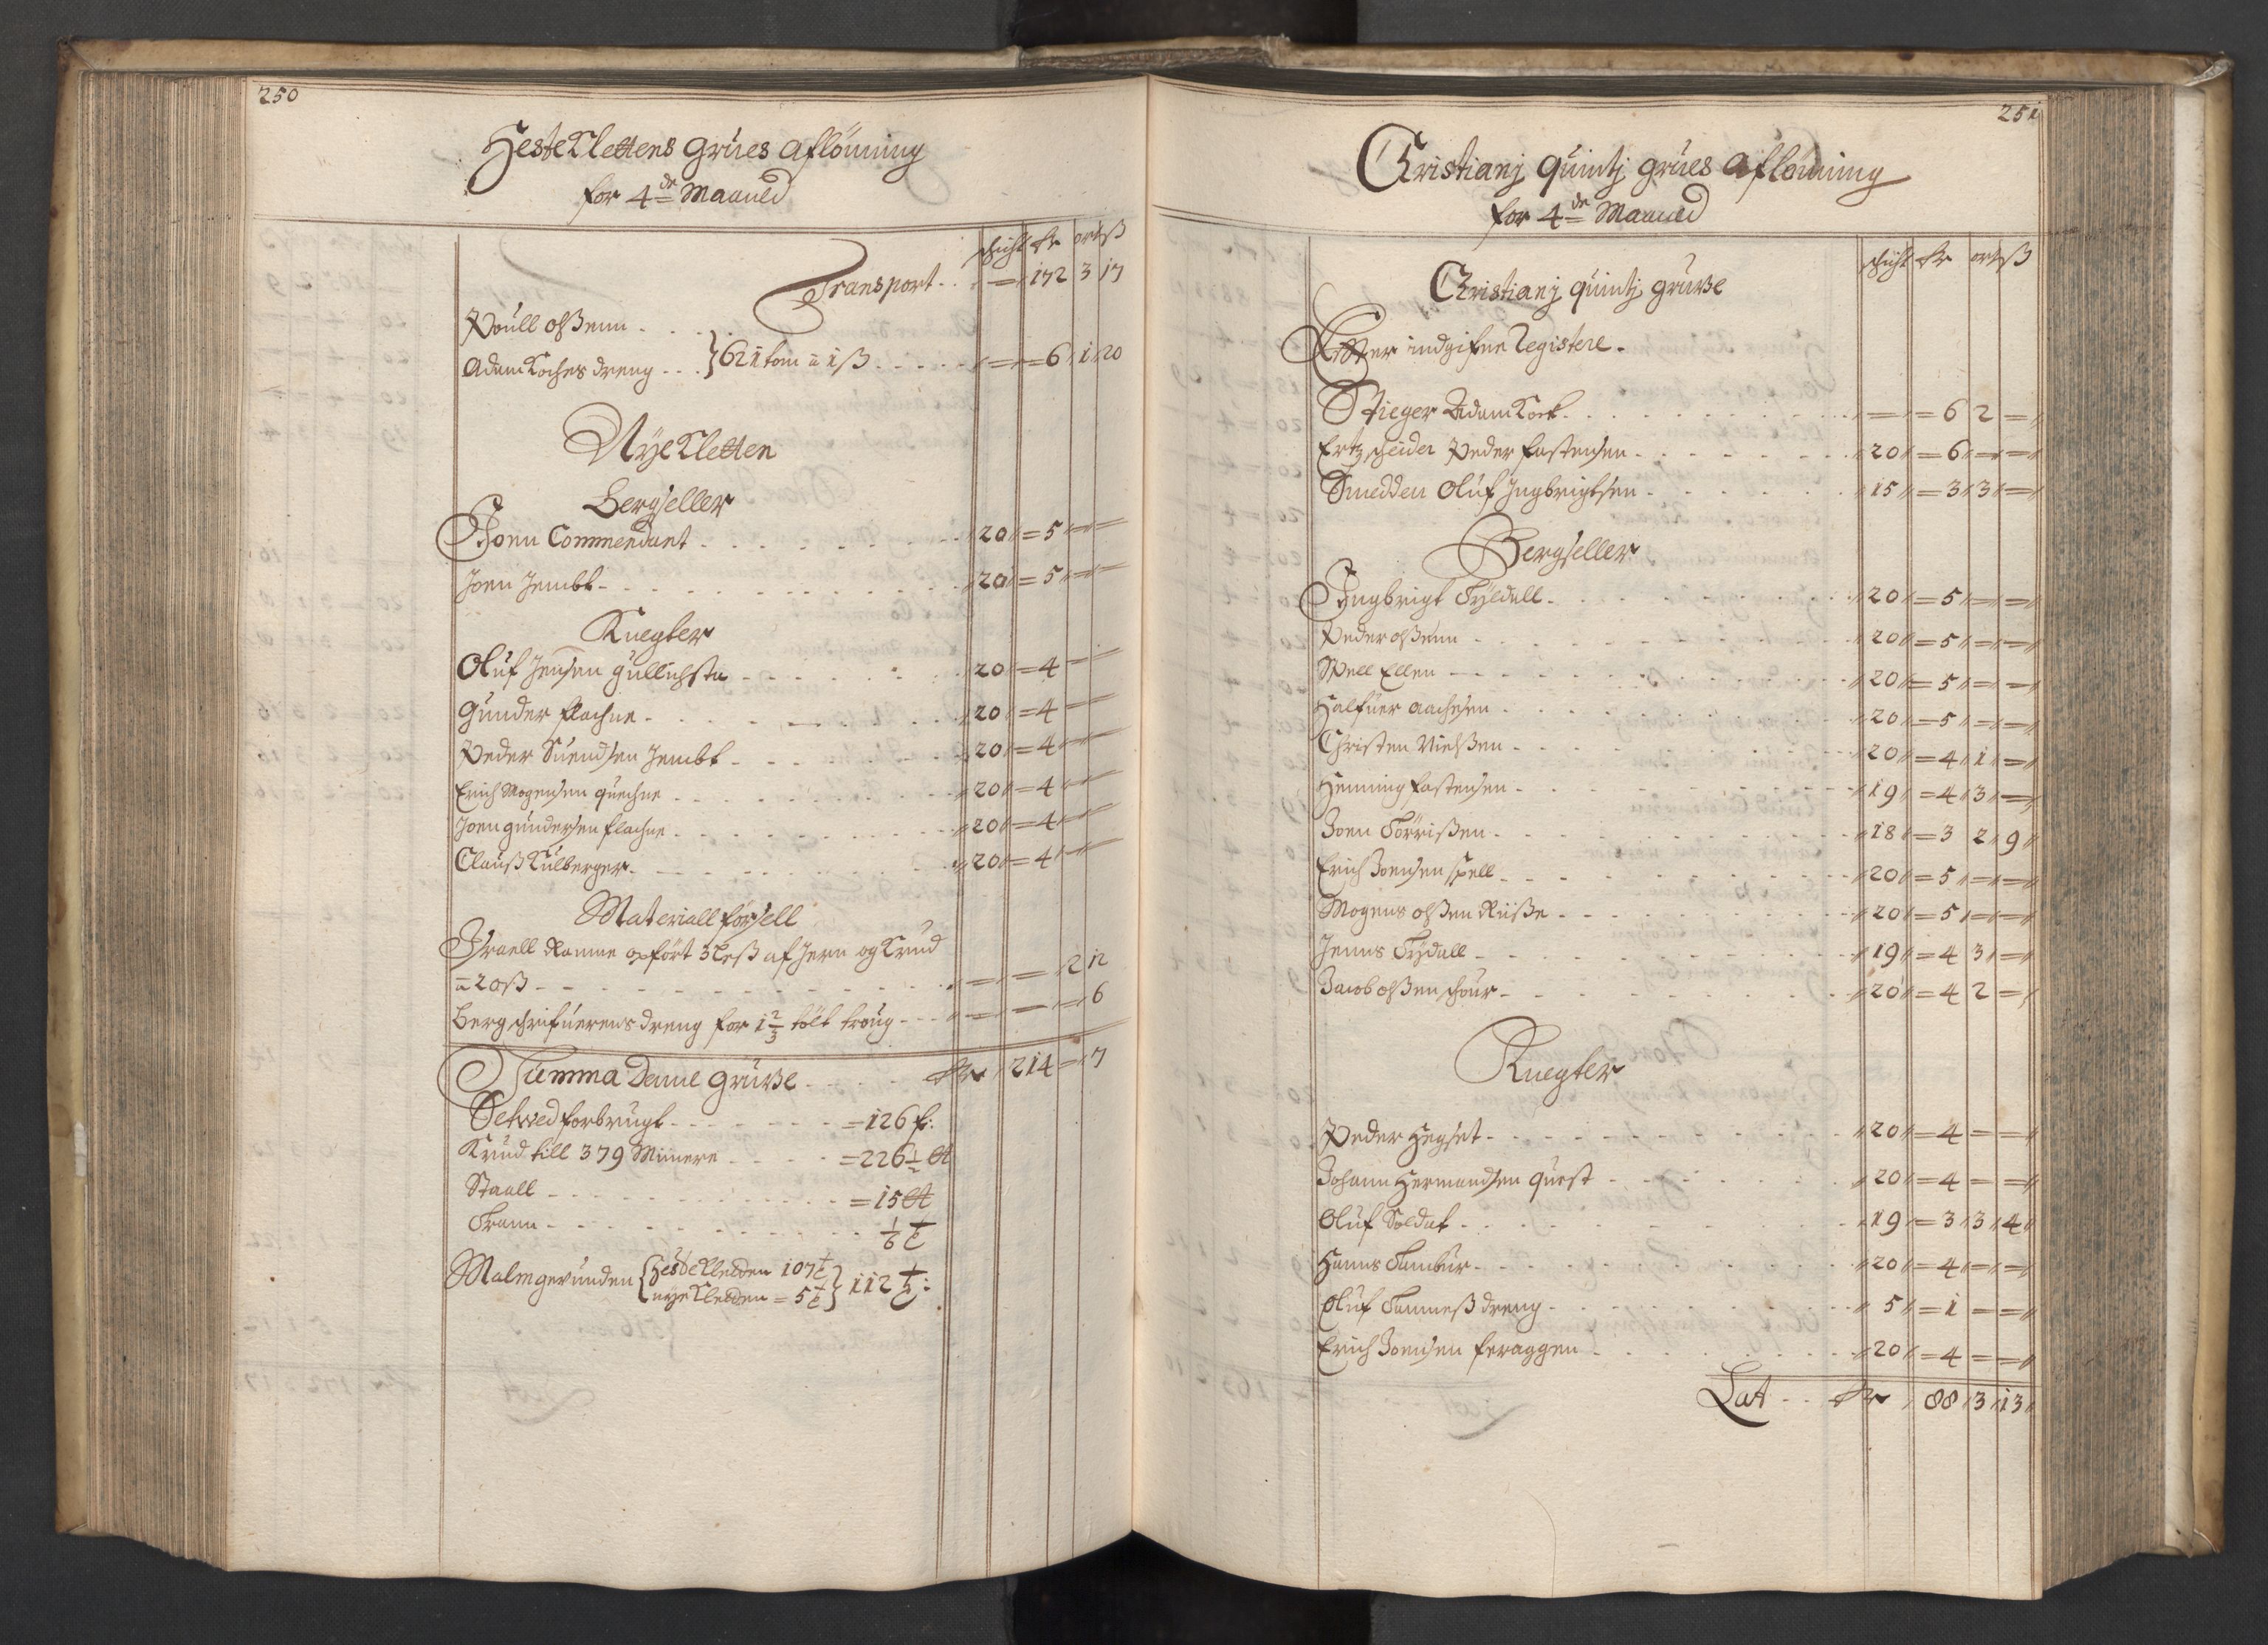 250
HesteKlettens Grues Aflönning
for 4de Maaned
schicht Rr ort ß
Transport - - = 172 3 17
Poull olßenn - - -
Adam Koches dreng - - } 621 tom a 1 ß - - - = = 6 1 20
Nye Kletten
Bergseller
Joen Commendant - - - 20 = 5 = =
Joen Jembt - - - 20 = 5 = =
Knegter
Oluf Jensen gullichsta - - - 20 = 4 = =
Gunder flachne - - - 20 = 4 = =
Peder Suendsen Jembt - - - 20 = 4 = =
Erich Mogensen quechne - - - 20 = 4 = =
Joen gundersen flachne - - - 20 = 4 = =
Clauß Kulberger - - - 20 = 4 = =
Materiall forsell
Israell Ramme opfört 3 leß af Jern og Krud
a 20 ß - - - = = 2 12
Bergschrifuerens dreng for 1 2/3 tölt troug - - - = = = 6
Summa denne Gruße - - - Rr 214 = 7
Setved forbrugt - - - = 126 f:
Krud till 379 Minnere - - - = 226 1/2 ℔
Staall - - - = 15 ℔
Trann - - - 1/6 t
Malm gevunden { HesteKledden 107 t } 112 t:
nyeKledden = 5 t
251
Christianj Quintj grues Aflönning
for 4de Maaned
schicht Rr ort ß
Christianj quintj gruße
Efter indgifne Registere.
Stieger Adam Koch - - - = = 6 2 =
Ertzscheider Peder fastensen - - - 20 = 6 = =
Smedden Oluf Ingbrigtsen - - - 15 = 3 3 =
Bergseller
Ingbrigt Tyldall - - - 20 = 5 = =
Peder olßenn - - - 20 = 5 = =
Spell Ellen - - - 20 = 5 = =
Halfuer Aachesen - - - 20 = 5 = =
Christen Nielßen - - - 20 = 4 1 =
Henning fastensen - - - 19 = 4 3 =
Joen Törrißen - - - 18 = 3 2 9
Erich Joensen spell - - - 20 = 5 = =
Mogens olßen Riiße - - - 20 = 5 = =
Jenns Tydall - - - 19 = 4 3 =
Jacob olßen schour - - - 20 = 4 2 =
Knegter
Peder Hegset - - - 20 = 4 = =
Johann Hermandsen Quest - - - 20 = 4 = =
Oluf Soldat - - - 19 = 3 3 4
Hanns Tambur - - - 20 = 4 = =
Oluf Tanneß dreng - - - 5 = 1 = =
Erich Joensen feraggen - - - 20 = 4 = =
Lat - - Rr 88 3 13